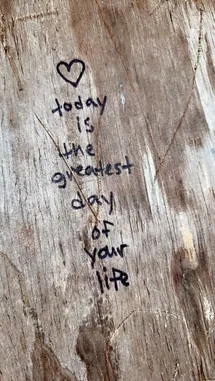 today
is
the
greatest
day
of
your
life